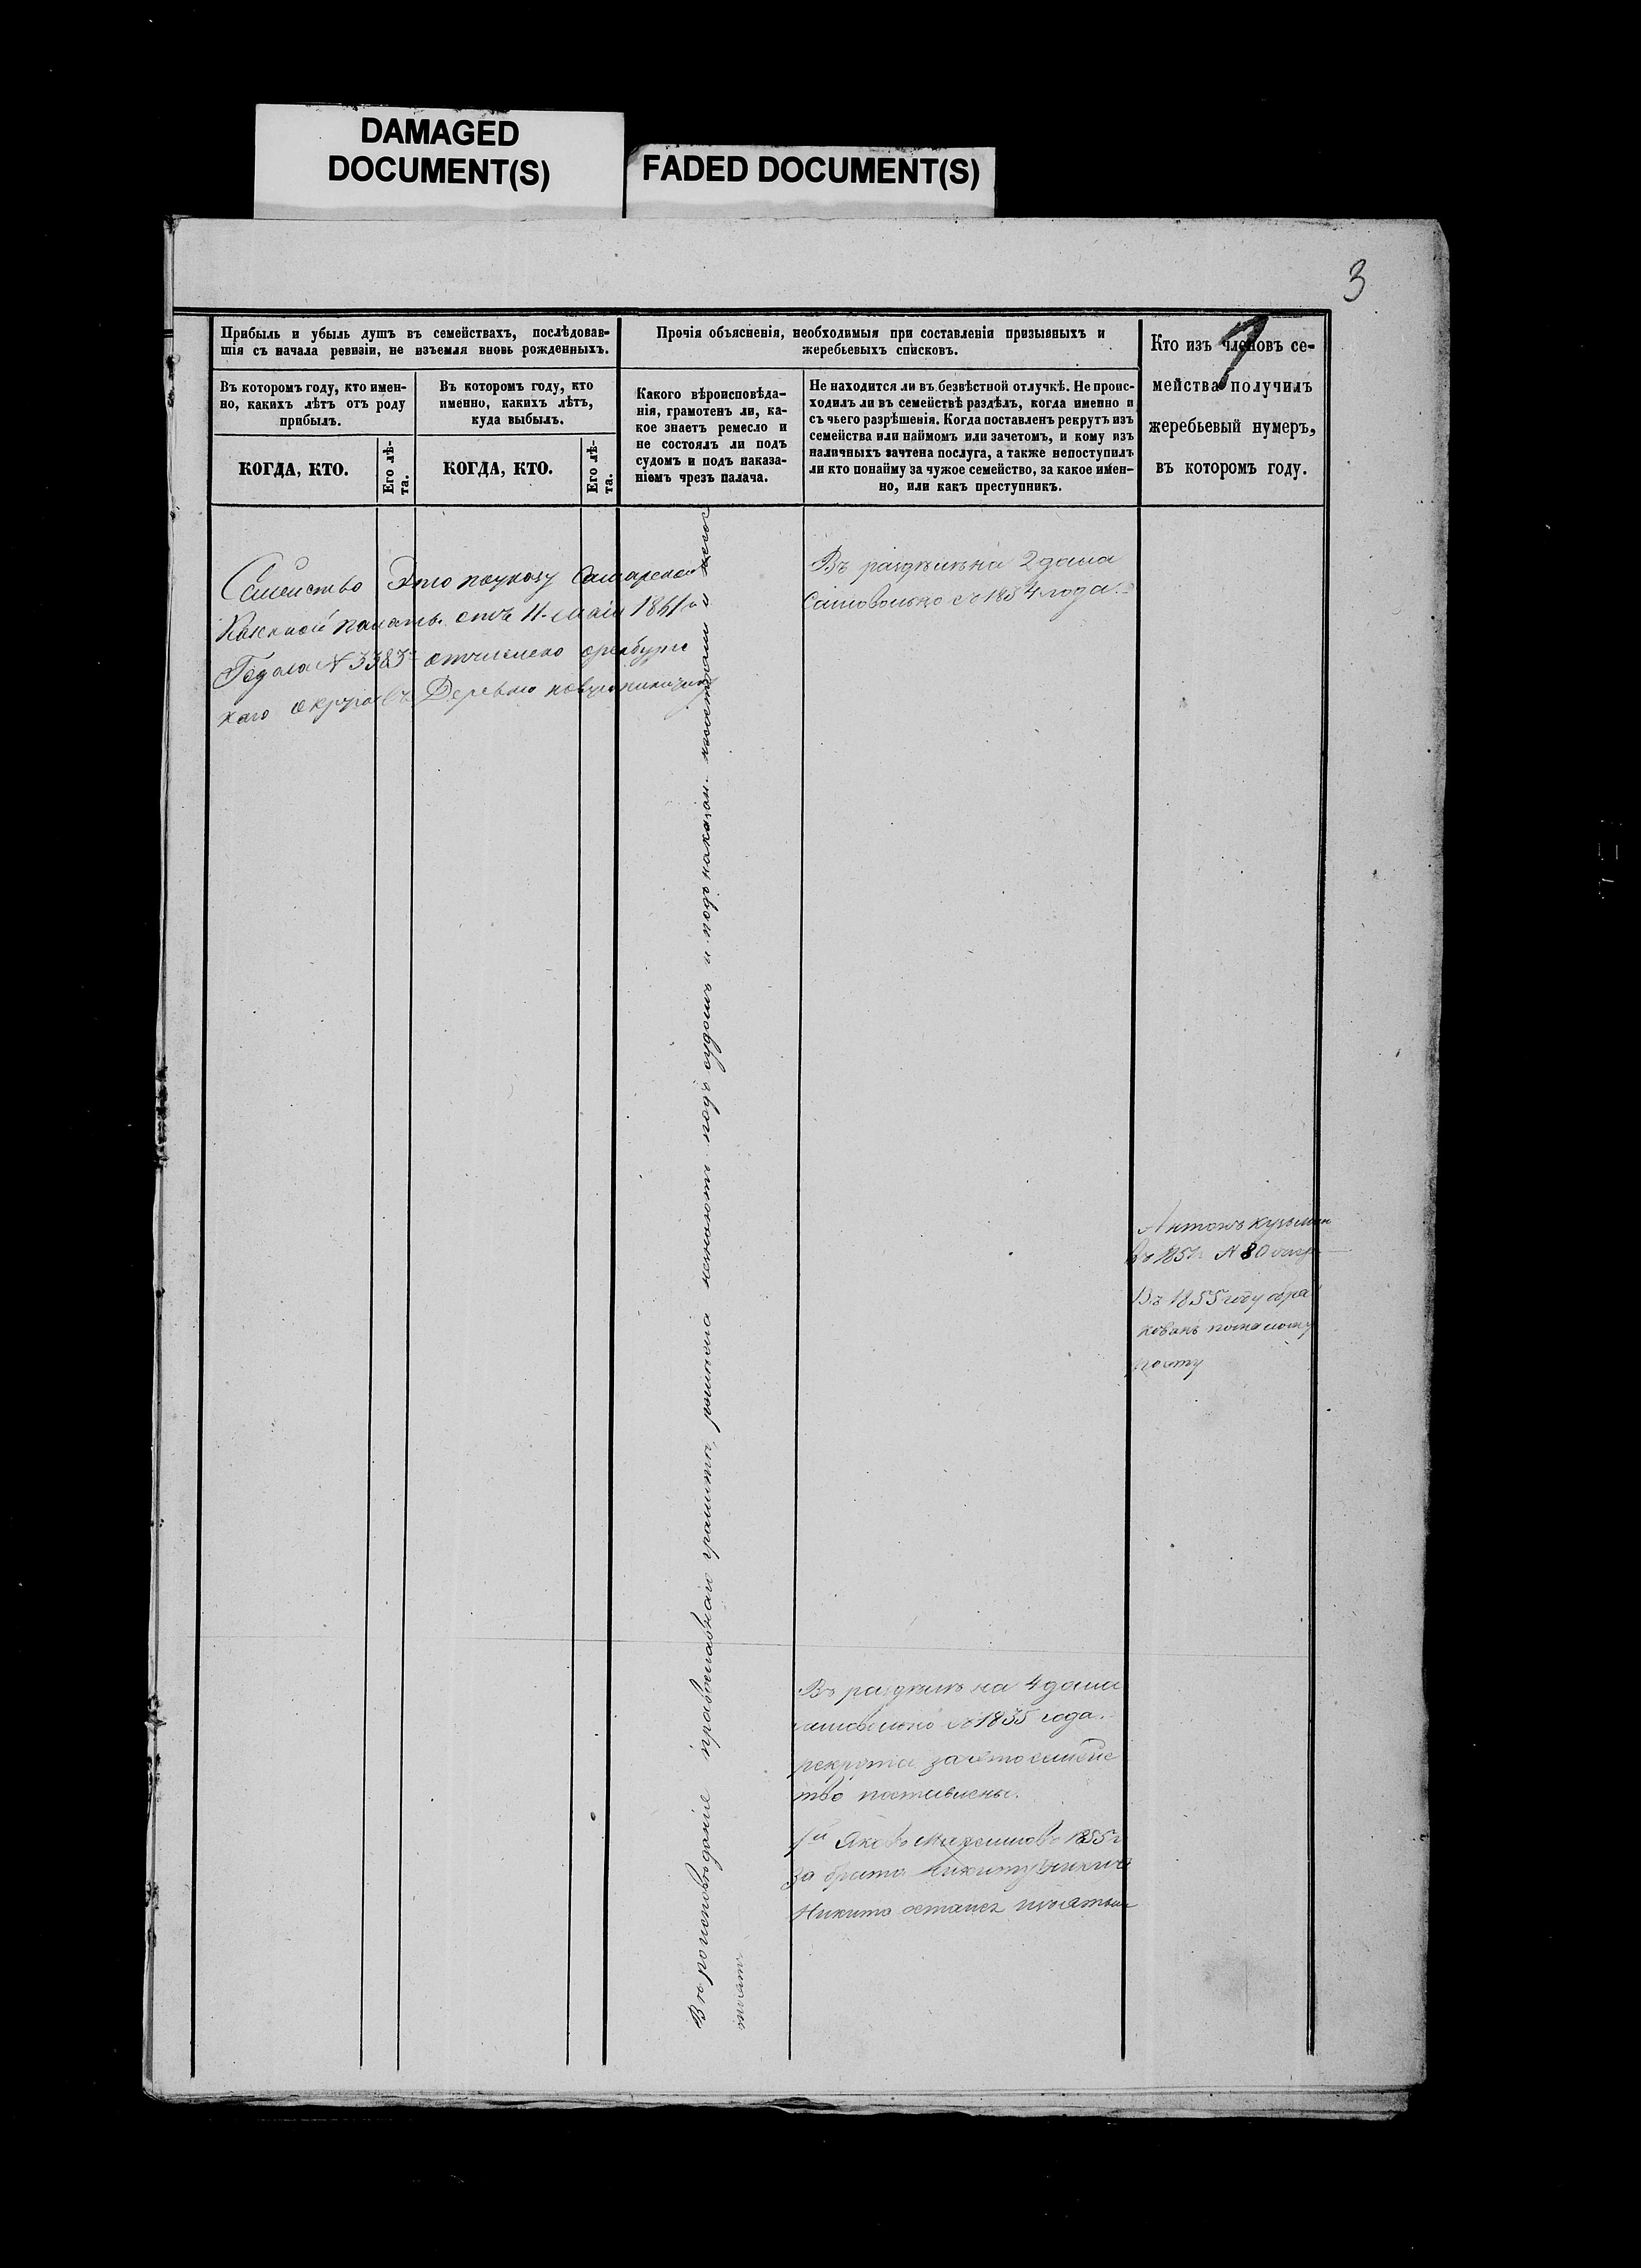 DAMAGED
DOCUMENT(S)
FADED DOCUMENT(S)
3
7
Прибыль и убыль душъ въ семействахъ, послѣдовав-
шія съ начала ревизіи, не изъемля вновь рожденныхъ.
Прочія объясненія, необходимыя при составленіи призывныхъ и
жеребьевыхъ списковъ.
Кто изъ членовъ се-
мейства получилъ
жеребьевый нумеръ,
въ которомъ году.
Въ которомъ году, кто имен-
но, какихъ лѣтъ отъ роду
прибылъ.
Въ которомъ году, кто
именно, какихъ лѣтъ,
куда выбылъ.
Какого вѣроисповѣда-
нія, грамотенъ ли, ка-
кое знаетъ ремесло и
не состоялъ ли подъ
судомъ и подъ наказа-
ніемъ чрезъ палача.
Не находится ли въ безвѣстной отлучкѣ. Не проис-
ходилъ ли въ семействѣ раздѣлъ, когда именно и
съ чьего разрѣшенія. Когда поставленъ рекрутъ изъ
семейства или наймомъ или зачетомъ, и кому изъ
наличныхъ зачтена послуга, а также непоступилъ
ли кто понайму за чужое семейство, за какое имен-
но, или какъ преступникъ.
КОГДА, КТО.
Его лѣ-
та.
КОГДА, КТО.
Его лѣ-
та.
Семейство Это поуказу Самарской
Казенной палаты отъ 11 маія 1861
Года № 3383 отчислено оренбургс
каго округа въ Деревню
Въ раздѣлѣ на 2 дома
Самовольно съ 1834 года.
Вѣроисповѣданія православнаго грамотѣ, ремесла незнаютъ подъ судомъ и подъ наказан. несостояли и несос
тоятъ
Антонъ кузьмин
Въ № 80
Въ 1855 году обра
кованъ помалому
росту
Въ раздѣлѣ на 4 дома
самовольно съ 1835 года.
рекрута заэто семейс
тво поставлены.
1й Яковъ Максимовъ 1855 г
за брата Никиту
Никита остался